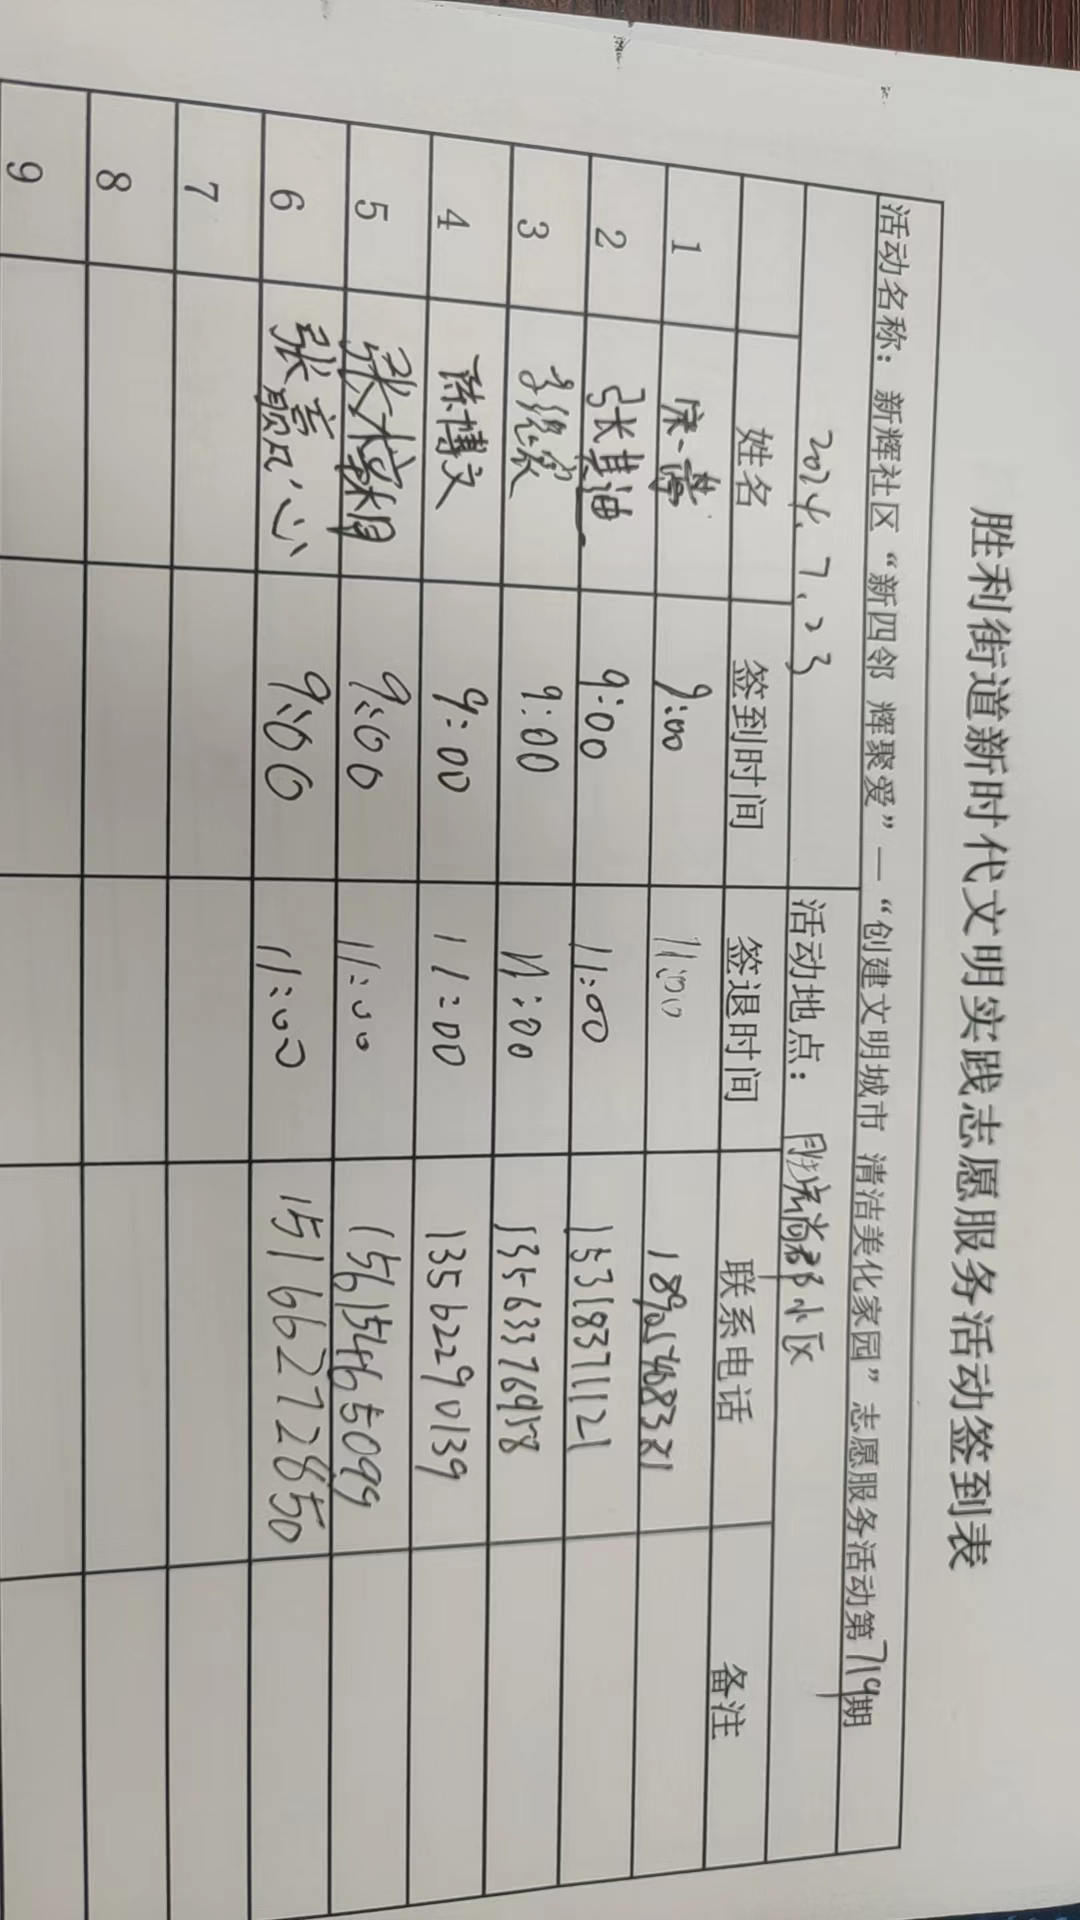 胜利街道新时代文明实践志愿服务活动签到表
活动名称：新辉社区“新四邻 辉聚爱”—“创建文明城市 清洁美化家园”志愿服务活动第719期
2024.7.23 活动地点：胜宏尚都小区
姓名 签到时间 签退时间 联系电话 备注
1 9:00 11:00
2 张其迪 9:00 11:00 15318371121
3 9:00 11:00 13563376958
4 陈博文 9:00 11:00 13562290139
5 张 9:00 11:00 15615465099
6 张 9:00 11:00 15166272850
7
8
9